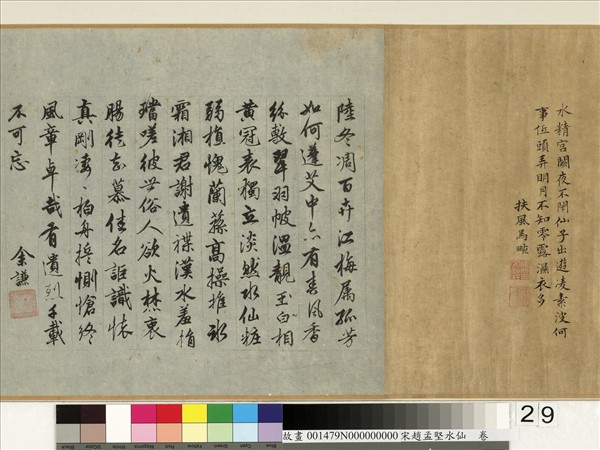 水精宮闕夜不閉仙子出遊凌素波何
事低頭弄明月不知零露濕衣多
扶風馬畹
隆冬凋百卉江梅厲孤芳
如何蓬艾中亦有春風香
紛敷翠羽帔溫靚玉白相
黃冠表獨立淡然水仙粧
弱植愧蘭蓀高操摧冰
霜湘君謝遺褋漢水羞捐
璫嗟彼世俗人欲火焚衷
腸徒知慕佳名詎識懷
真剛淒〻柏舟誓惻愴終
風章卓哉有遺烈千載
不可忘
余謙
29
故畫 001479N000000000 宋趙孟堅水仙 卷